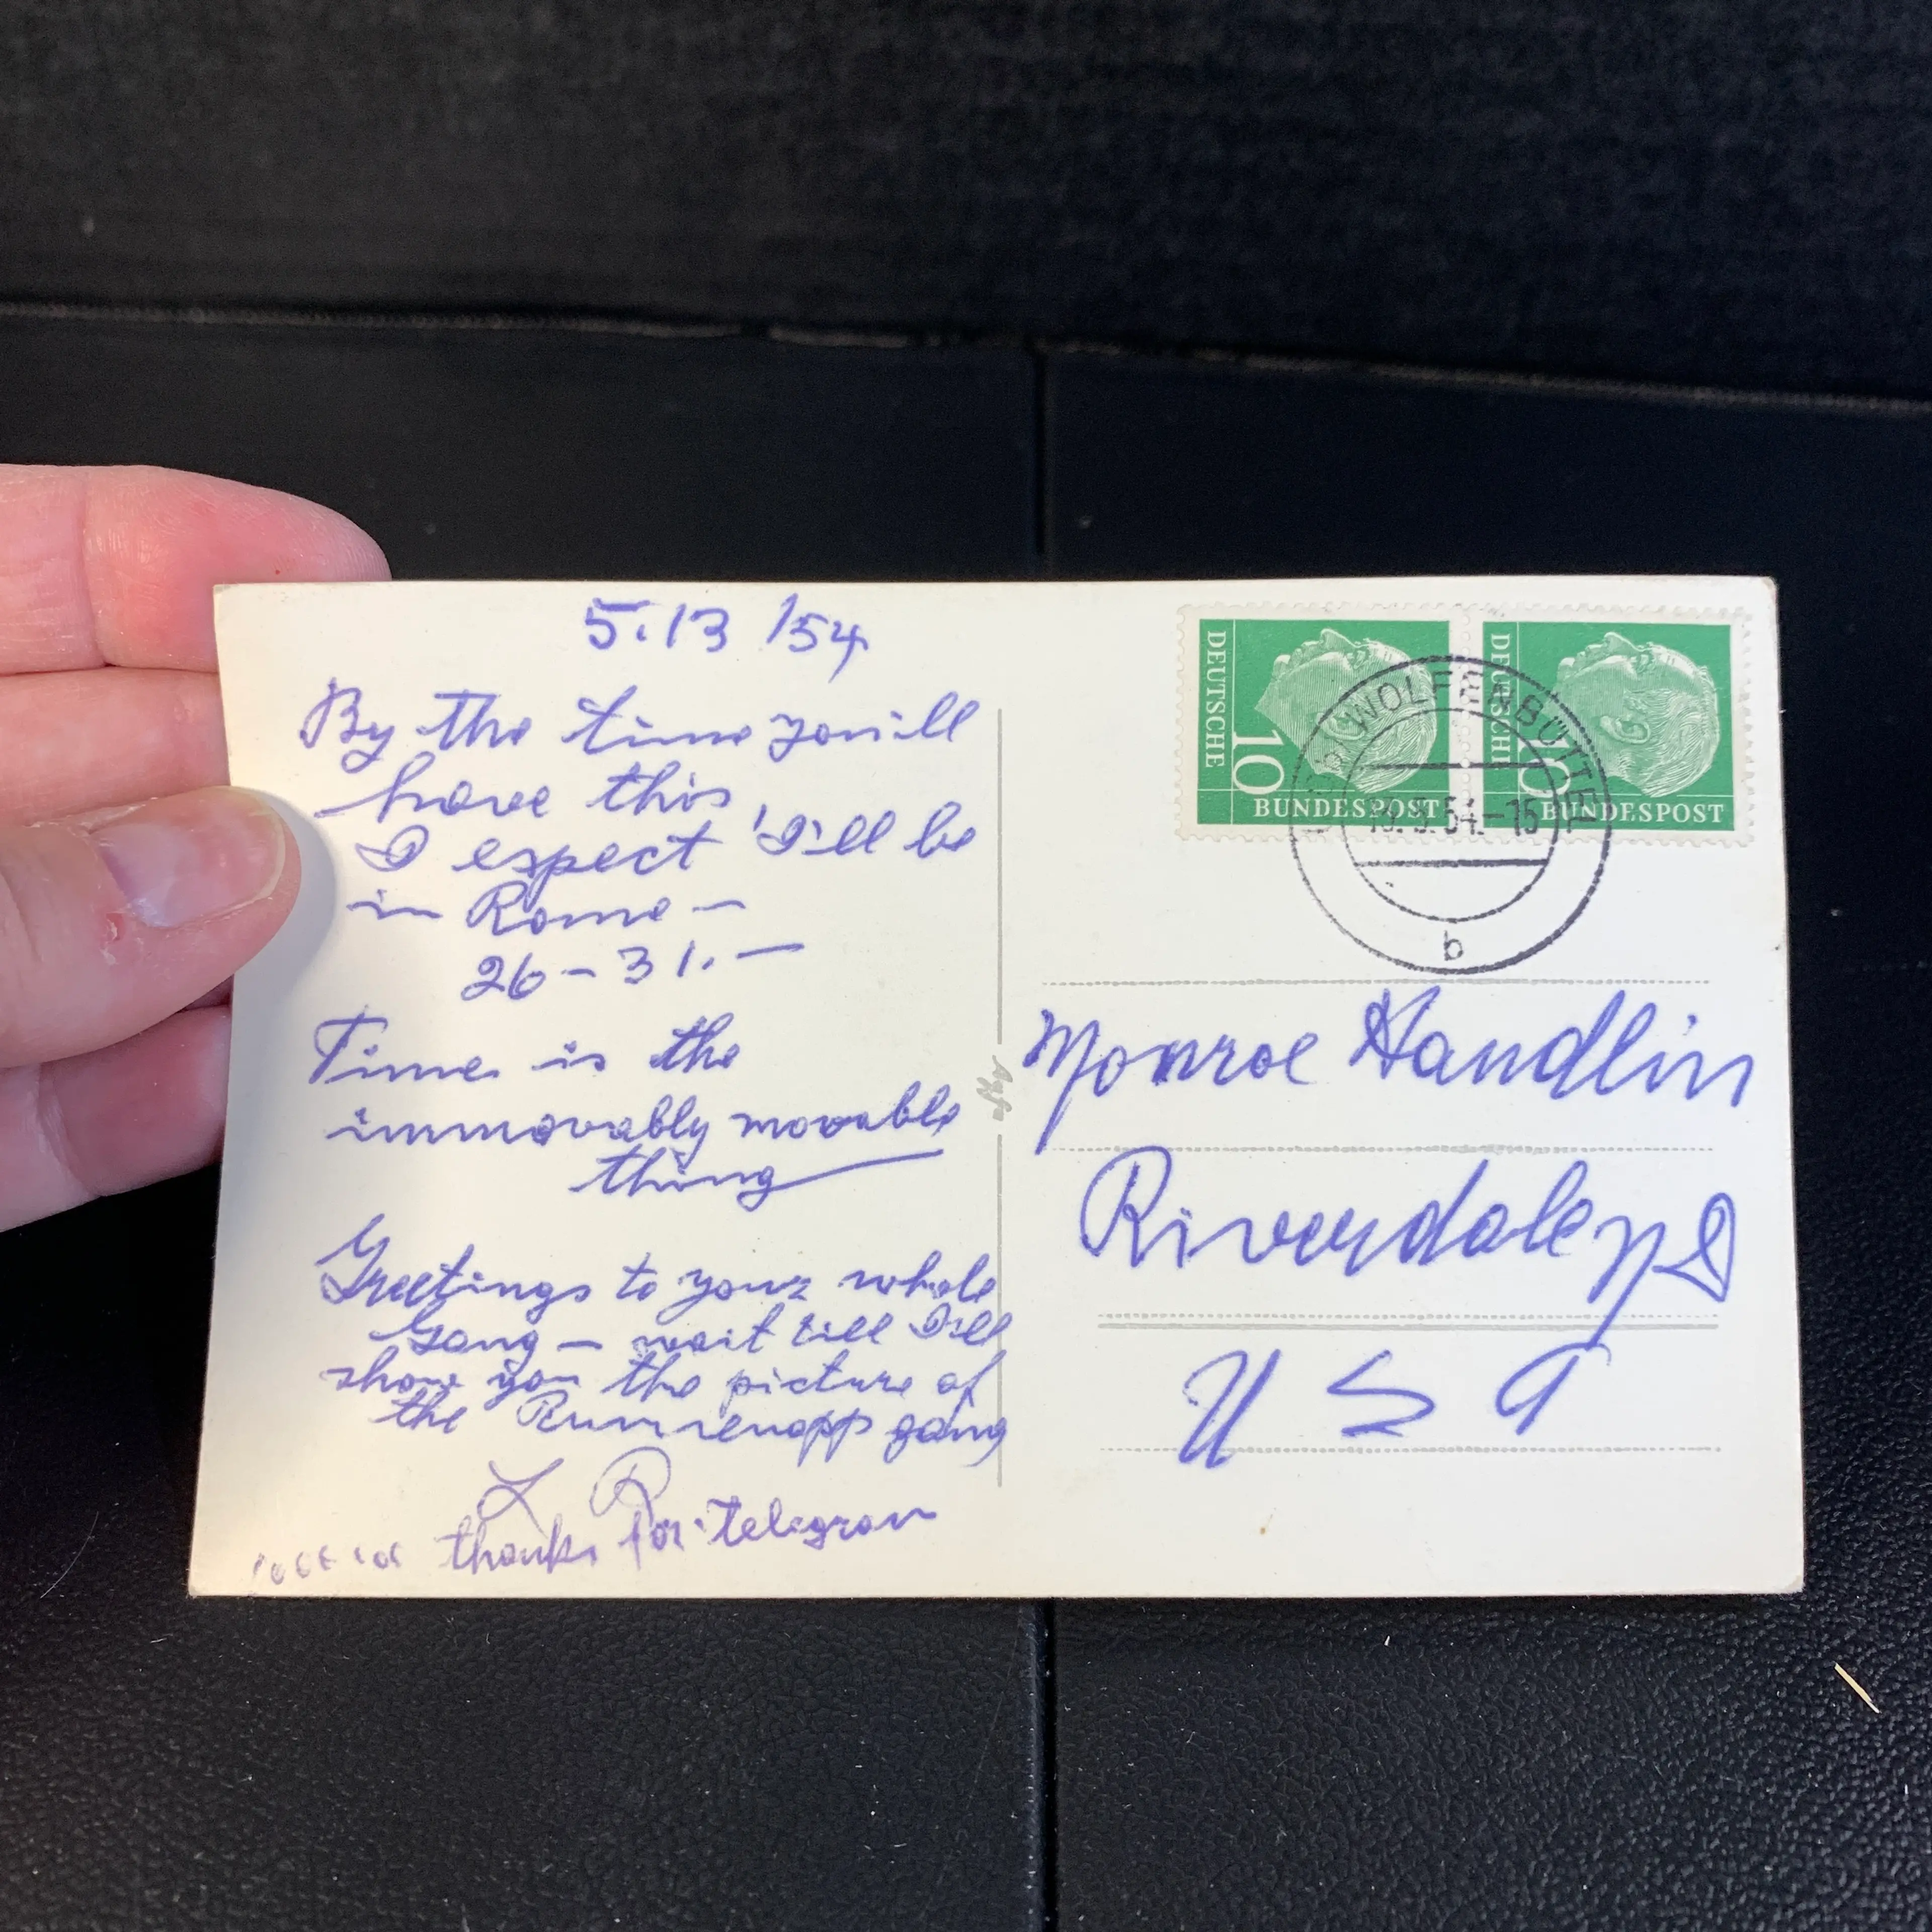 5.13 /54
By the time you'll
have this
I espect I'll be
in Rome —
26 – 31. —
Time is the
immovably movable
thing
Greetings to your whole
Gang — wait till I'll
show you the picture of
the gang
L R
thanks for telegram
Agfa
DEUTSCHE
10
BUNDESPOST
DEUTSCHE
10
BUNDESPOST
WOLFENBÜTTEL
13.5.54.-15
b
Monroe Handlin
Riverdale
U S A